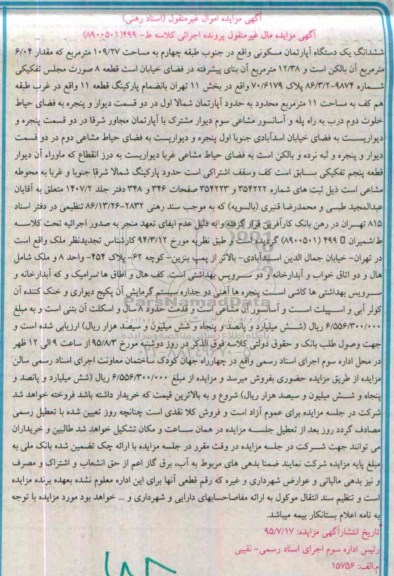 آگهی مزایده اموال غیرمنقول (اسناد رهنی)
آگهی مزایده مال غیرمنقول پرونده اجرائی کلاسه ط- ۴۹۹(۸۹۰۰۵۰۱)
ششدانگ یک دستگاه آپارتمان مسکونی واقع در جنوب طبقه چهارم به مساحت ۱۰۹/۲۷ مترمربع که مقدار ۶/۰۴
مترمربع آن بالکن است و ۱۲/۳۸ مترمربع آن بنای پیشرفته در فضای خیابان است قطعه ۸ صورت مجلس تفکیکی
شماره ۹۸۷۴-۸۶/۳/۲ پلاک ۷۰/۶۱۷۹ واقع در بخش ۱۱ تهران بانضمام پارکینگ قطعه ۱۱ واقع در غرب طبقه
هم کف به مساحت ۱۱ مترمربع محدود به حدود آپارتمان شمالا اول در دو قسمت دیوار و پنجره به فضای حیاط
خلوت دوم درب به راه پله و آسانسور مشاعی سوم دیوار مشترک با آپارتمان مجاور شرقا در دو قسمت پنجره و
دیواریست به فضای خیابان اسدآبادی جنوبا اول پنجره و دیواریست به فضای حیاط مشاعی دوم در دو قسمت
دیوار و پنجره و لبه نرده و بالکن است به فضای حیاط مشاعی غربا دیواریست به درز انقطاع که ماوراء آن دیوار
قطعه پنجم تفکیکی سابق است کف وسقف اشتراکی است حدود پارکینگ شمالا شرقا جنوبا و غربا به محوطه
مشاعی است ذیل ثبت های شماره ۳۵۴۲۲۲ و ۳۵۴۲۲۳ صفحات ۳۴۶ و ۳۴۸ دفتر جلد ۱۴۰۷/۲ متعلق به آقایان
عبدالمجید طبسی و محمدرضا قنبری (بالسویه) که به موجب سند رهنی ۲۸۳۲-۸۶/۱۳/۲۶ تنظیمی در دفتر اسناد
۸۱۵ تهران در رهن بانک کارآفرین قرار گرفته و به دلیل عدم ایفای تعهد منجر به صدور اجرائیه تحت کلاسه
ط/شمیران ۴۹۹ (۸۹۰۰۵۰۱) گردیده است و طبق نظریه مورخ ۹۴/۳/۱۲ کارشناس تجدیدنظر ملک واقع است
در تهران- خیابان جمال الدین اسدآبادی- بالاتر از پمپ بنزین- کوچه ۶۲- پلاک ۴۵۴- واحد ۸ و ملک شامل
هال و دو اتاق خواب و آبدارخانه و دو سرویس بهداشتی است. کف هال و اطاق ها سرامیک و که آبدارخانه و
سرویس بهداشتی ها کاشی است پنجره ها آهنی دو جداره سیستم گرمایش آن پکیج دیواری و خنک کننده آن
کولر آبی و اسپیلت است و آسانسور آن مشاعی است و قدمت حدود ۸ سال و اسکلت آن بتنی است و به مبلغ
۶/۵۵۶/۳۰۰/۰۰۰ ریال (شش میلیارد و پانصد و پنجاه و شش میلیون و سیصد هزار ریال) ارزیابی شده است و
جهت وصول طلب بانک و حقوق دولتی کلاسه فوق الذکر در روز دوشنبه مورخ ۹۵/۸/۳ از ساعت ۹ الی ۱۲ ظهر
در محل اداره سوم اجرای اسناد رسمی واقع در چهارراه جهان کودک ساختمان معاونت اجرای اسناد رسمی سالن
مزایده از طریق مزایده حضوری بفروش میرسد و مزایده از مبلغ ۶/۵۵۶/۳۰۰/۰۰۰ ریال (شش میلیارد و پانصد و
پنجاه و شش میلیون و سیصد هزار ریال) شروع و به بالاترین قیمت که خریدار داشته باشد فروخته خواهد شد
شرکت در جلسه مزایده برای عموم آزاد است و فروش کلا نقدی است چنانچه روز تعیین شده با تعطیل رسمی
مصادف گردد روز بعد از تعطیل جلسه مزایده در همان ساعت و مکان تشکیل خواهد شد طالبین و خریداران
می توانند جهت شرکت در جلسه مزایده در وقت مقرر در جلسه مزایده با ارائه چک تضمین شده بانک ملی به
مبلغ پایه مزایده شرکت نمایند ضمنا بدهی های مربوط به آب، برق گاز اعم از حق انشعاب و اشتراک و مصرف
و نیز بدهی مالیاتی و عوارض شهرداری و غیره که رقم قطعی آنها برای این اداره معلوم نشده بعهده برنده مزایده
است و تنظیم سند انتقال موکول به ارائه مفاصاحسابهای دارایی و شهرداری و ... خواهد بود مورد مزایده با توجه
به نامه اعلام بستانکار بیمه میباشد.
تاریخ انتشارآگهی مزایده: ۹۵/۷/۱۷
رئیس اداره سوم اجرای اسناد رسمی- نقیبی
م.الف: ۱۵۷۵۶
ParsNamadData